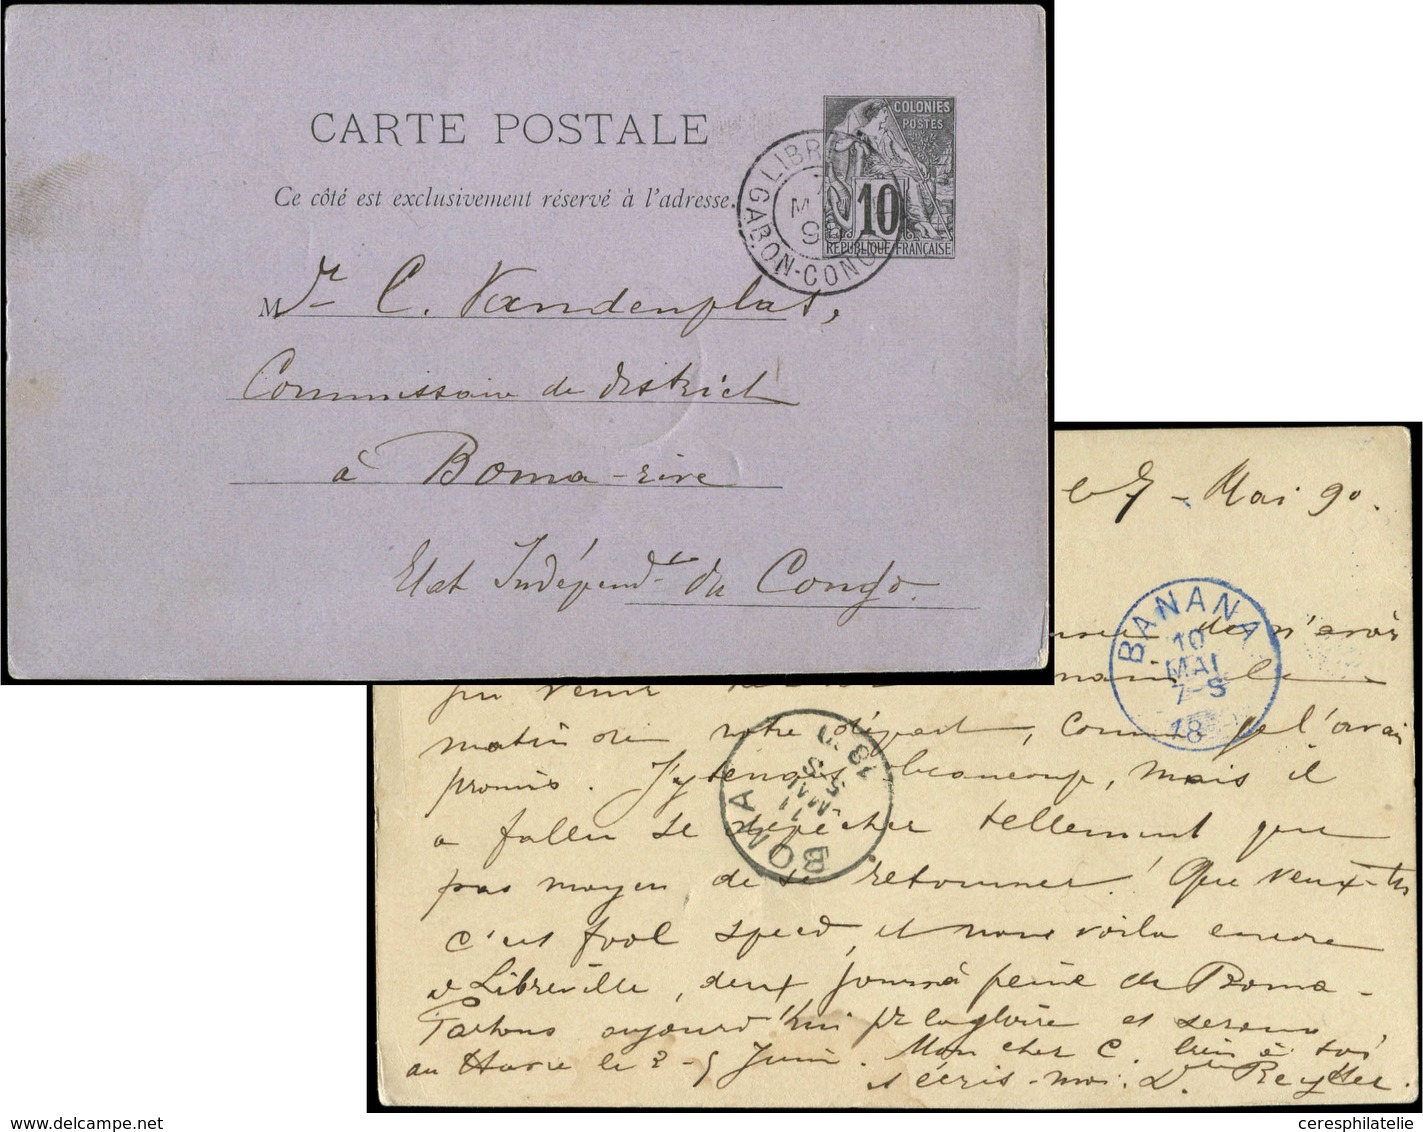 CARTE POSTALE
Ce côté est exclusivement réservé à l'adresse.
COLONIES
POSTES
10
RÉPUBLIQUE FRANÇAISE
LIBREV
GABON-CONGO
M Mr C. Vandenplas,
Commissaire de district
à Boma-rive
Etat Indépendt du Congo.
le 7 - Mai 90.
BANANA
10
MAI
7-8
18
de n'avoir
pu venir
matin de notre départ, comme je l'avais
promis. J'y tenais beaucoup, mais il
a fallu se dépêcher tellement que
pas moyen de se retourner! Que veux-tu
c'est fool speed, et nous voilà encore
à Libreville, deux jours à peine de Boma-
Partons aujourd'hui pr la gloire et serons
au Havre le 3-5 Juin. Mon cher C. bien à toi
et écris-moi. D. Reytter.
BOMA
11
MAI
5-S
18
www.delcampe.net
ceresphilatelie